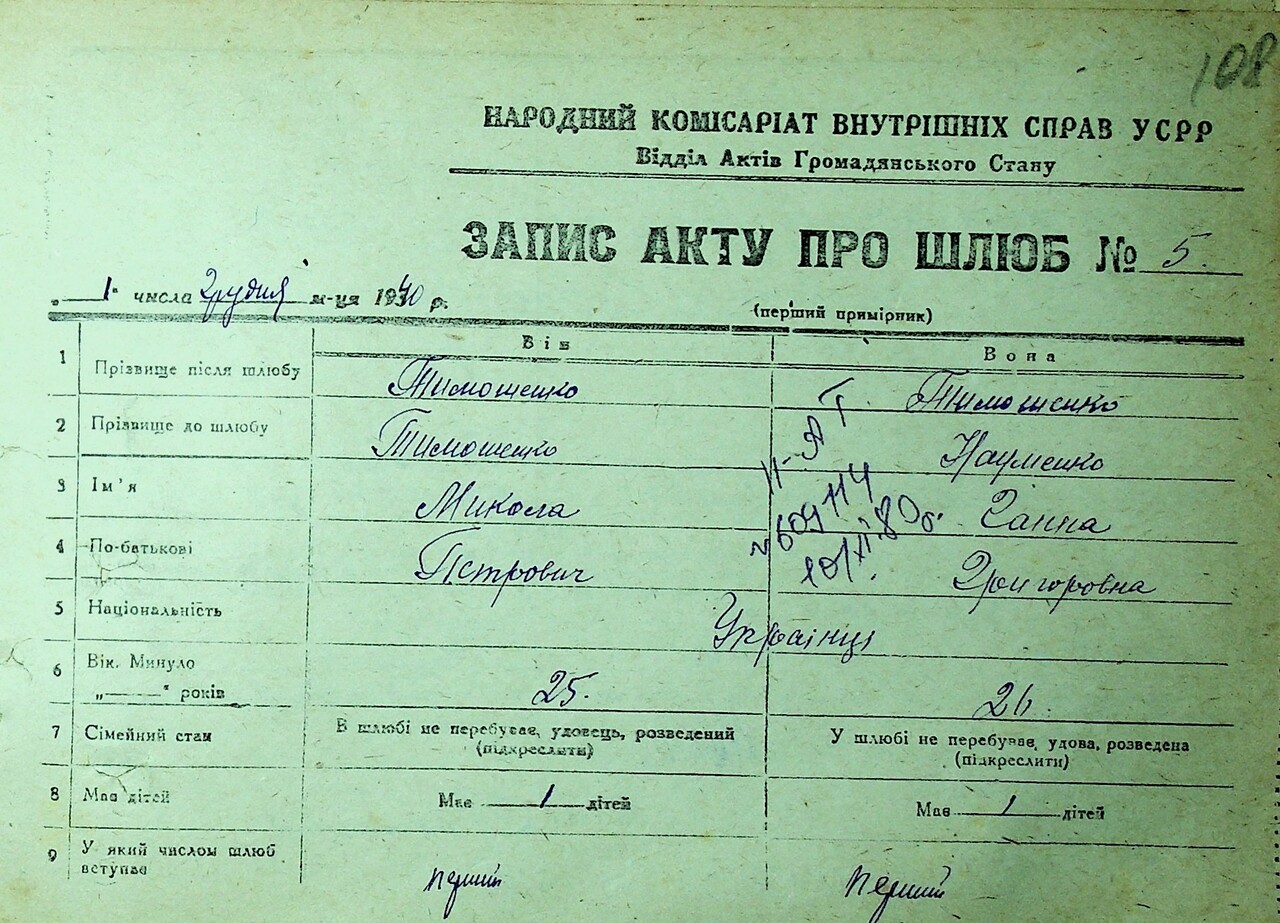 108
НАРОДНИЙ КОМІСАРІАТ ВНУТРІШНІХ СПРАВ УСРР
Відділ Актів Громадянського Стану
ЗАПИС АКТУ ПРО ШЛЮБ № 5.
„ 1 " числа Грудня м-ця 1940 р.
(перший примірник)
Він Вона
1 Прізвище після шлюбу Тимошенко Тимошенко
2 Прізвище до шлюбу Тимошенко Науменко
3 Ім'я Микола Ганна
4 По-батькові Петрович Григоровна
II-ЯТ
№ 609114
10/XII.80
5 Національність Українці
6 Вік. Минуло
„——" років 25. 26.
7 Сімейний стан В шлюбі не перебуває, удовець, розведений У шлюбі не перебуває, удова, розведена
(підкреслити) (підкреслити)
8 Має дітей Має 1 дітей Має 1 дітей
9 У який числом шлюб
вступає перший перший